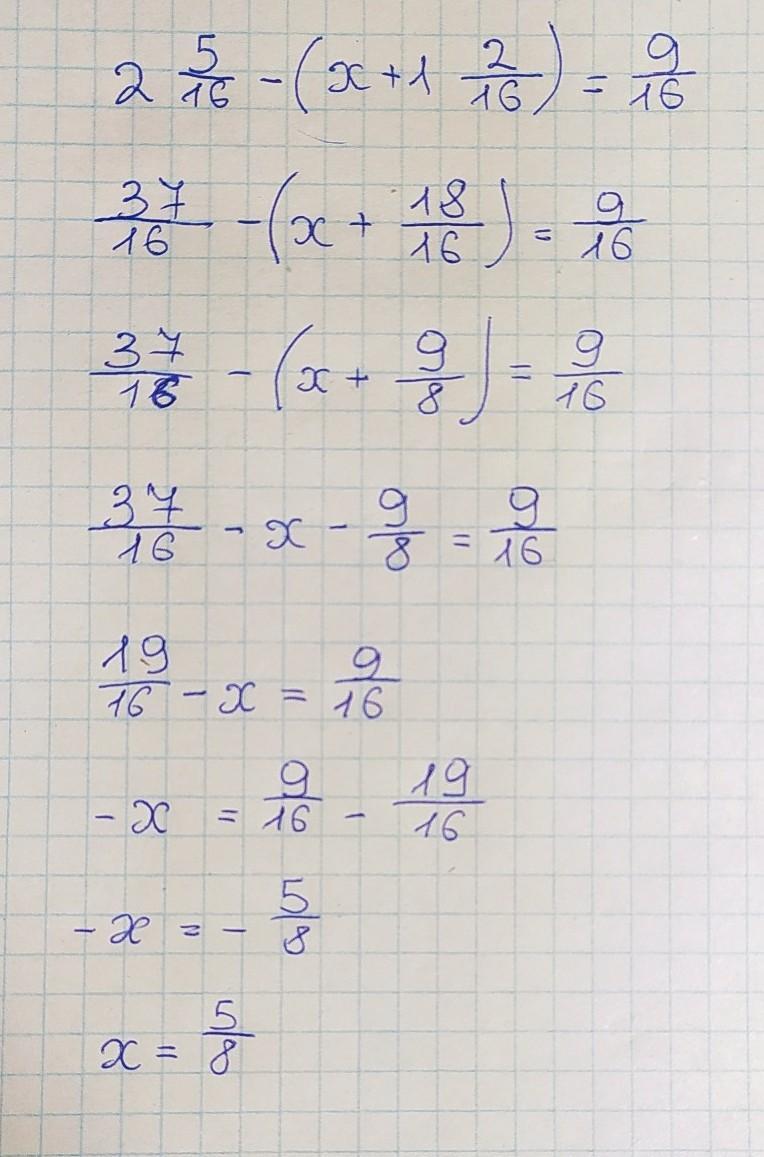 2 5/16 - (x + 1 2/16) = 9/16
37/16 - (x + 18/16) = 9/16
37/16 - (x + 9/8) = 9/16
37/16 - x - 9/8 = 9/16
19/16 - x = 9/16
- x = 9/16 - 19/16
- x = - 5/8
x = 5/8